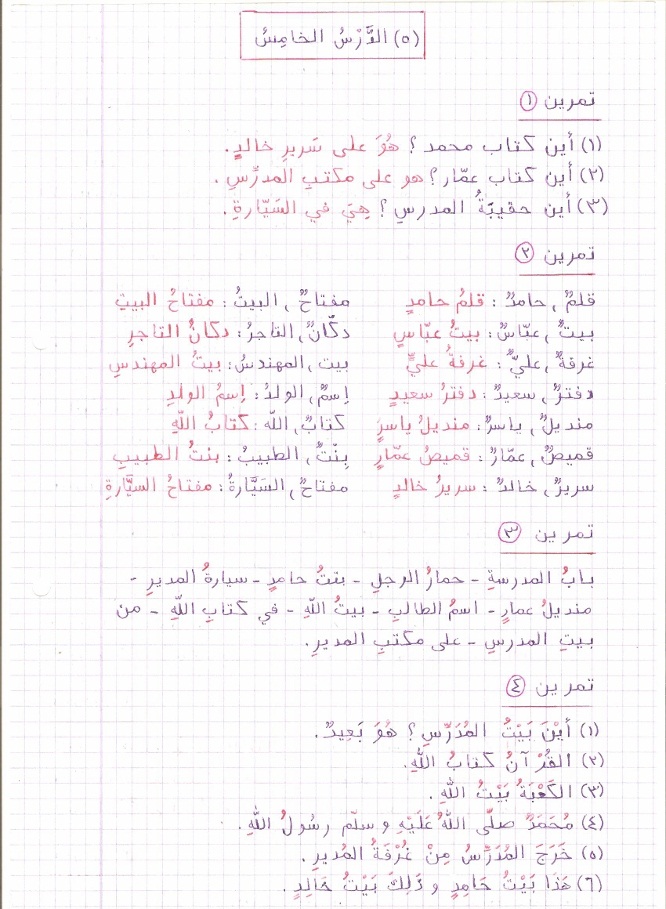 (٥) الدَّرْسُ الخامِسُ
تمرين ①
(١) أين كتاب محمد؟ هُوَ على سَريرِ خالدٍ.
(٢) أين كتاب عمّار؟ هو على مكتبِ المدرّسِ.
(٣) أين حقيبَةُ المدرسِ؟ هِيَ في السَيّارةِ.
تمرين ②
قلمٌ, حامدٌ: قلمُ حامدٍ مفتاحٌ, البيتُ: مفتاحُ البيتِ
بيتٌ, عبّاسٌ: بيتُ عبّاسٍ دكّانٌ, التاجرُ: دكانُ التاجرِ
غرفةٌ, عليٌّ: غرفةُ عليٍّ بيت, المهندسُ: بيتُ المهندسِ
دفترٌ, سعيدٌ: دفترُ سعيدٍ إسمٌ, الولدُ: إسمُ الولدِ
منديلٌ, ياسرٌ: منديلُ ياسرٍ كتابٌ, اللّه: كتابُ اللّهِ
قميصٌ, عمّارٌ: قميصُ عمّارٍ بِنْتٌ, الطبيبُ: بنتُ الطبيبِ
سريرٌ, خالدٌ: سريرُ خالدٍ مفتاحٌ, السَيَّارةُ: مفتاحُ السيَّارةِ
تمرين ③
بابُ المدرسةِ - حمارُ الرجلِ - بنتُ حامدٍ - سيارةُ المديرِ -
منديلُ عمارٍ - اسمُ الطالبِ - بيتُ اللّهِ - في كتابِ اللّهِ - من
بيتِ المدرسِ - على مكتبِ المديرِ.
تمرين ④
(١) أَيْنَ بَيْتُ المُدَرِّسِ؟ هُوَ بَعِيدٌ.
(٢) القُرْآنُ كتابُ اللّهِ.
(٣) الكَعْبَةُ بَيْتُ اللّهِ.
(٤) مُحَمَدٌ صلَّى اللّهُ عَلَيْهِ و سلّم رسُولُ اللّهِ.
(٥) خَرَجَ المُدَرِّسُ مِنْ غُرْفَةُ المُديرِ.
(٦) هَذَا بَيْتُ حَامِدٍ و ذَلِكَ بَيْتُ خَالِدٍ.